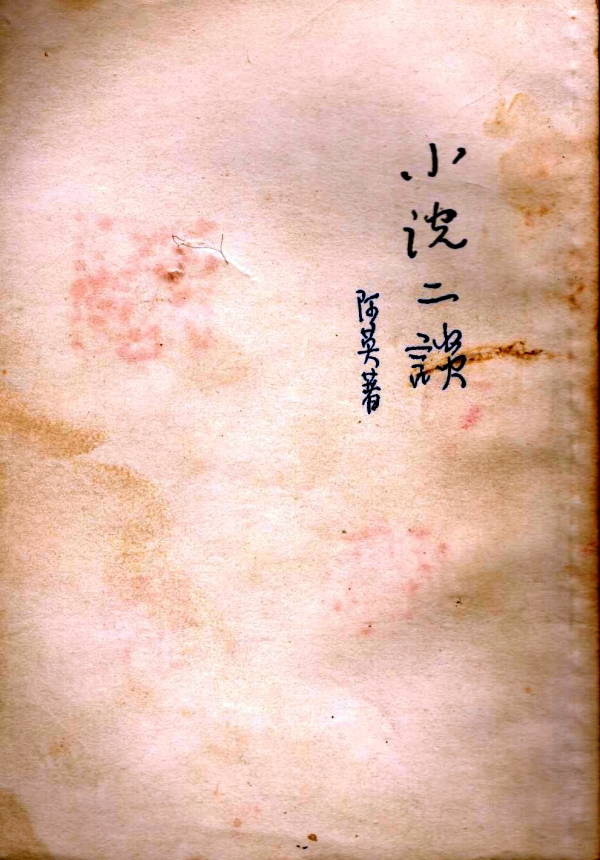 小说二談
阿英著